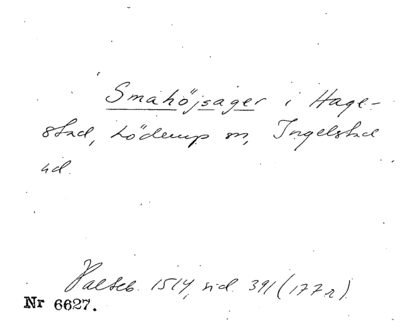 Smahöjsager i Hage-
stad, Löderup sn, Ingelstad
hd.
Palteb. 1514, sid. 391 (177 r).
Nr 6627.